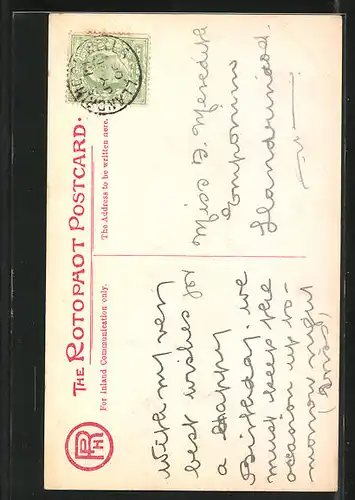 THE ROTOPHOT POSTCARD.
For Inland Communication only.
The Address to be written here.
RPH
With my very
best wishes for
a Happy
Birthday. we
must keep the
occasion up to-
morrow night
Miss G. Meredith
Llandrindod.